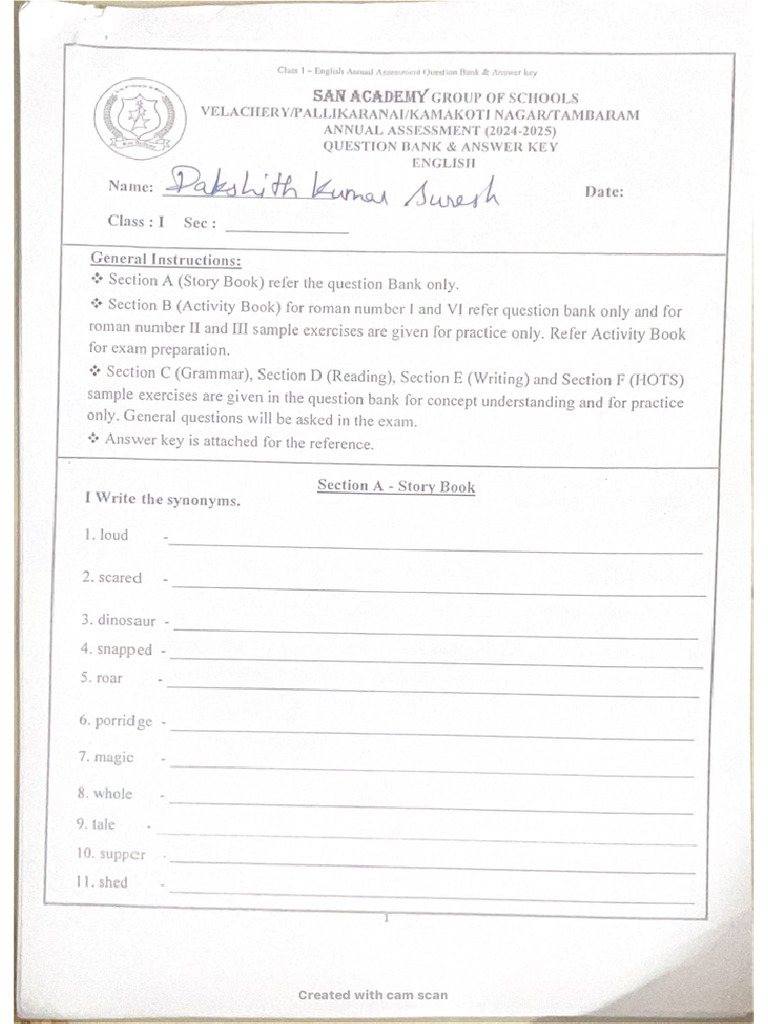 Class 1 – English Annual Assessment Question Bank & Answer key
SAN ACADEMY GROUP OF SCHOOLS
VELACHERY/PALLIKARANAI/KAMAKOTI NAGAR/TAMBARAM
ANNUAL ASSESSMENT (2024-2025)
QUESTION BANK & ANSWER KEY
ENGLISH
Name: Dakshith Kumar Suresh Date:
Class : I Sec : ____________
General Instructions:
❖ Section A (Story Book) refer the question Bank only.
❖ Section B (Activity Book) for roman number I and VI refer question bank only and for
roman number II and III sample exercises are given for practice only. Refer Activity Book
for exam preparation.
❖ Section C (Grammar), Section D (Reading), Section E (Writing) and Section F (HOTS)
sample exercises are given in the question bank for concept understanding and for practice
only. General questions will be asked in the exam.
❖ Answer key is attached for the reference.
Section A - Story Book
I Write the synonyms.
1. loud -
2. scared -
3. dinosaur -
4. snapped -
5. roar -
6. porridge -
7. magic -
8. whole -
9. tale -
10. supper -
11. shed -
1
Created with cam scan